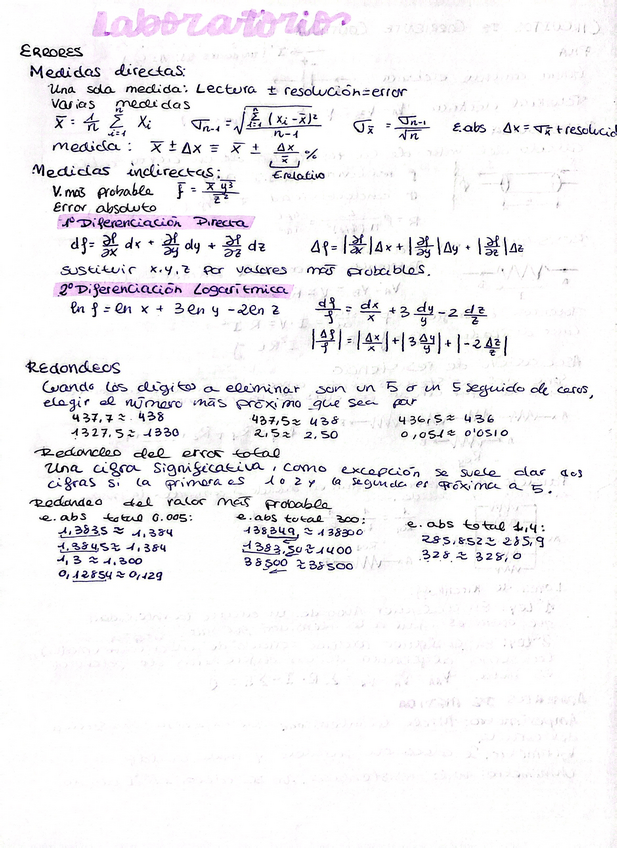 Laboratorio
ERRORES
Medidas directas:
Una sola medida: Lectura ± resolución=error
Varias medidas
x̄ = 1/n Σ_{i=1}^{n} Xi    σ_{n-1} = √(Σ_{i=1}^{n} (xi - x̄)² / n-1)    σ_x̄ = σ_{n-1}/√n    E.abs Δx = σ_x̄ + resolució
medida: x̄ ± Δx ≡ x̄ ± Δx/x̄ %
E relativo
Medidas indirectas:
V. más probable f̄ = x̄ ȳ³/z̄²
Error absoluto
1º Diferenciación Directa
df = ∂f/∂x dx + ∂f/∂y dy + ∂f/∂z dz    Δf = |∂f/∂x| Δx + |∂f/∂y| Δy + |∂f/∂z| Δz
sustituir x, y, z por valores más probables.
2º Diferenciación Logarítmica
ln f = ln x + 3 ln y - 2 ln z    df/f = dx/x + 3 dy/y - 2 dz/z
|Δf/f| = |Δx/x| + |3 Δy/y| + |-2 Δz/z|
REDONDEOS
Cuando los dígitos a eliminar son un 5 o un 5 seguido de ceros,
elegir el número más próximo que sea par
437,7 ≈ 438    437,5 ≈ 438    436,5 ≈ 436
1327,5 ≈ 1330    2,5 ≈ 2,50    0,051 ≈ 0'0510
Redondeo del error total
Una cifra significativa, como excepción se suele dar dos
cifras si la primera es 1 o 2 y la segunda es próxima a 5.
Redondeo del valor más probable
e. abs total 0.005:    e. abs total 300:    e. abs total 1,4:
1,3835 ≈ 1,384    138349, ≈ 138300    285,852 ≈ 285,9
1,3845 ≈ 1,384    1383,50 ≈ 1400    328 ≈ 328,0
1,3 ≈ 1,300    38500 ≈ 38500
0,12854 ≈ 0,129